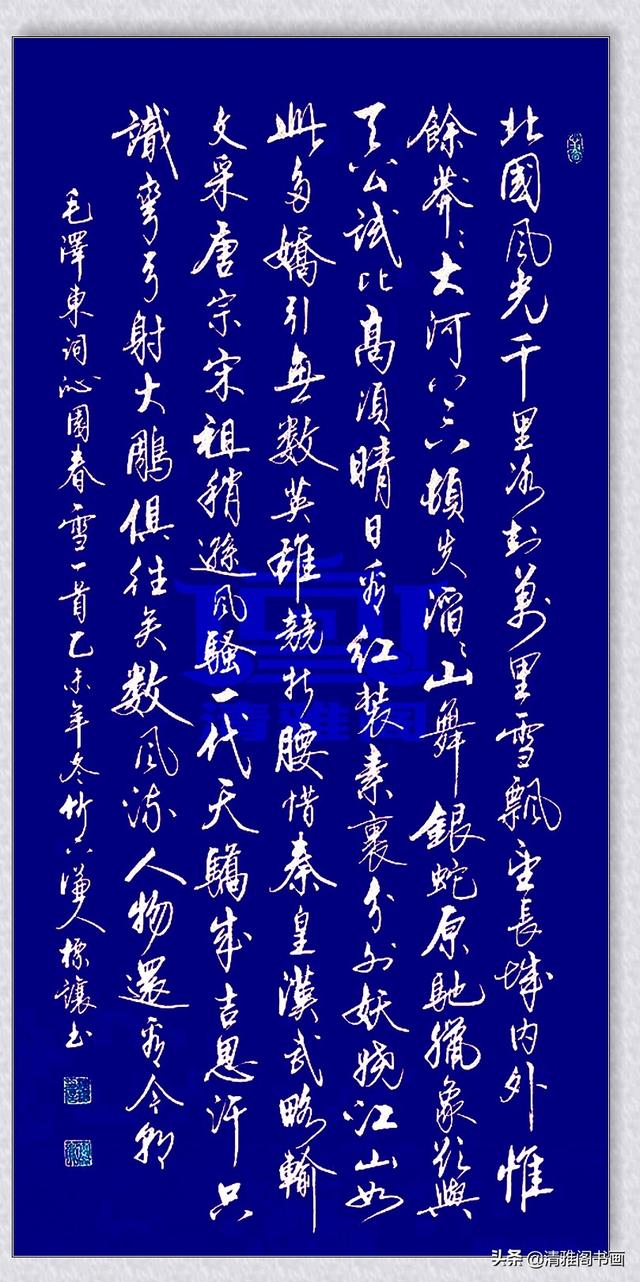 北國風光千里冰封萬里雪飄望長城内外惟
餘莽〻大河上下頓失滔〻山舞銀蛇原馳臘象欲與
天公試比高須晴日看紅裝素裹分外妖嬈江山如
此多嬌引無數英雄競折腰惜秦皇漢武略輸
文采唐宗宋祖稍遜風騷一代天驕成吉思汗只
識彎弓射大鵰俱往矣數風流人物還看今朝
毛澤東詞沁園春雪一首乙未年冬竹下謙人標讓书
清雅阁
头条 @清雅阁书画